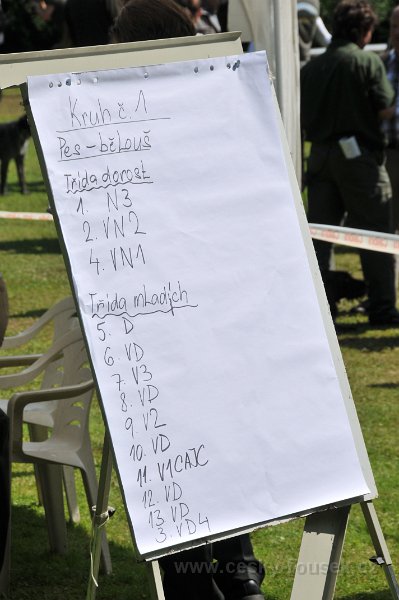 Kruh č. 1
Pes - bělouš
Třída dorost
1. N3
2. VN2
4. VN1
Třída mladých
5. D
6. VD
7. V3
8. VD
9. V2
10. VD
11. V1CAJC
12. VD
13. VD
3. VD4
www.cesky-fousek.cz